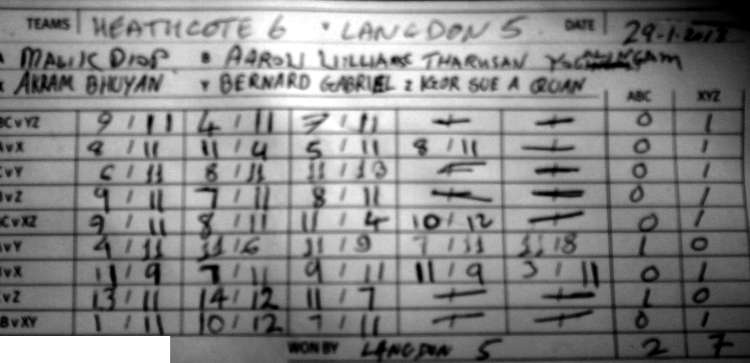 TEAMS HEATHCOTE 6 v LANGDON 5 DATE 29-1-2013
MALIK DIOP B AARON WILLIAMS THARUSAN
AKRAM BHUYAN Y BERNARD GABRIEL Z IGOR SUE A QUAN
ABC XYZ
BC v YZ 9 / 11 4 / 11 7 / 11 — — 0 1
A v X 8 / 11 11 / 4 5 / 11 8 / 11 — 0 1
C v Y 6 / 11 8 / 11 11 / 13 — — 0 1
B v Z 9 / 11 7 / 11 8 / 11 — — 0 1
C v XZ 9 / 11 8 / 11 11 / 4 10 / 12 — 0 1
A v Y 9 / 11 11 / 6 11 / 9 7 / 11 11 / 8 1 0
v X 11 / 9 7 / 11 9 / 11 11 / 9 3 / 11 0 1
v Z 13 / 11 14 / 12 11 / 7 — — 1 0
B v XY 1 / 11 10 / 12 7 / 11 — — 0 1
WON BY LANGDON 5 2 7